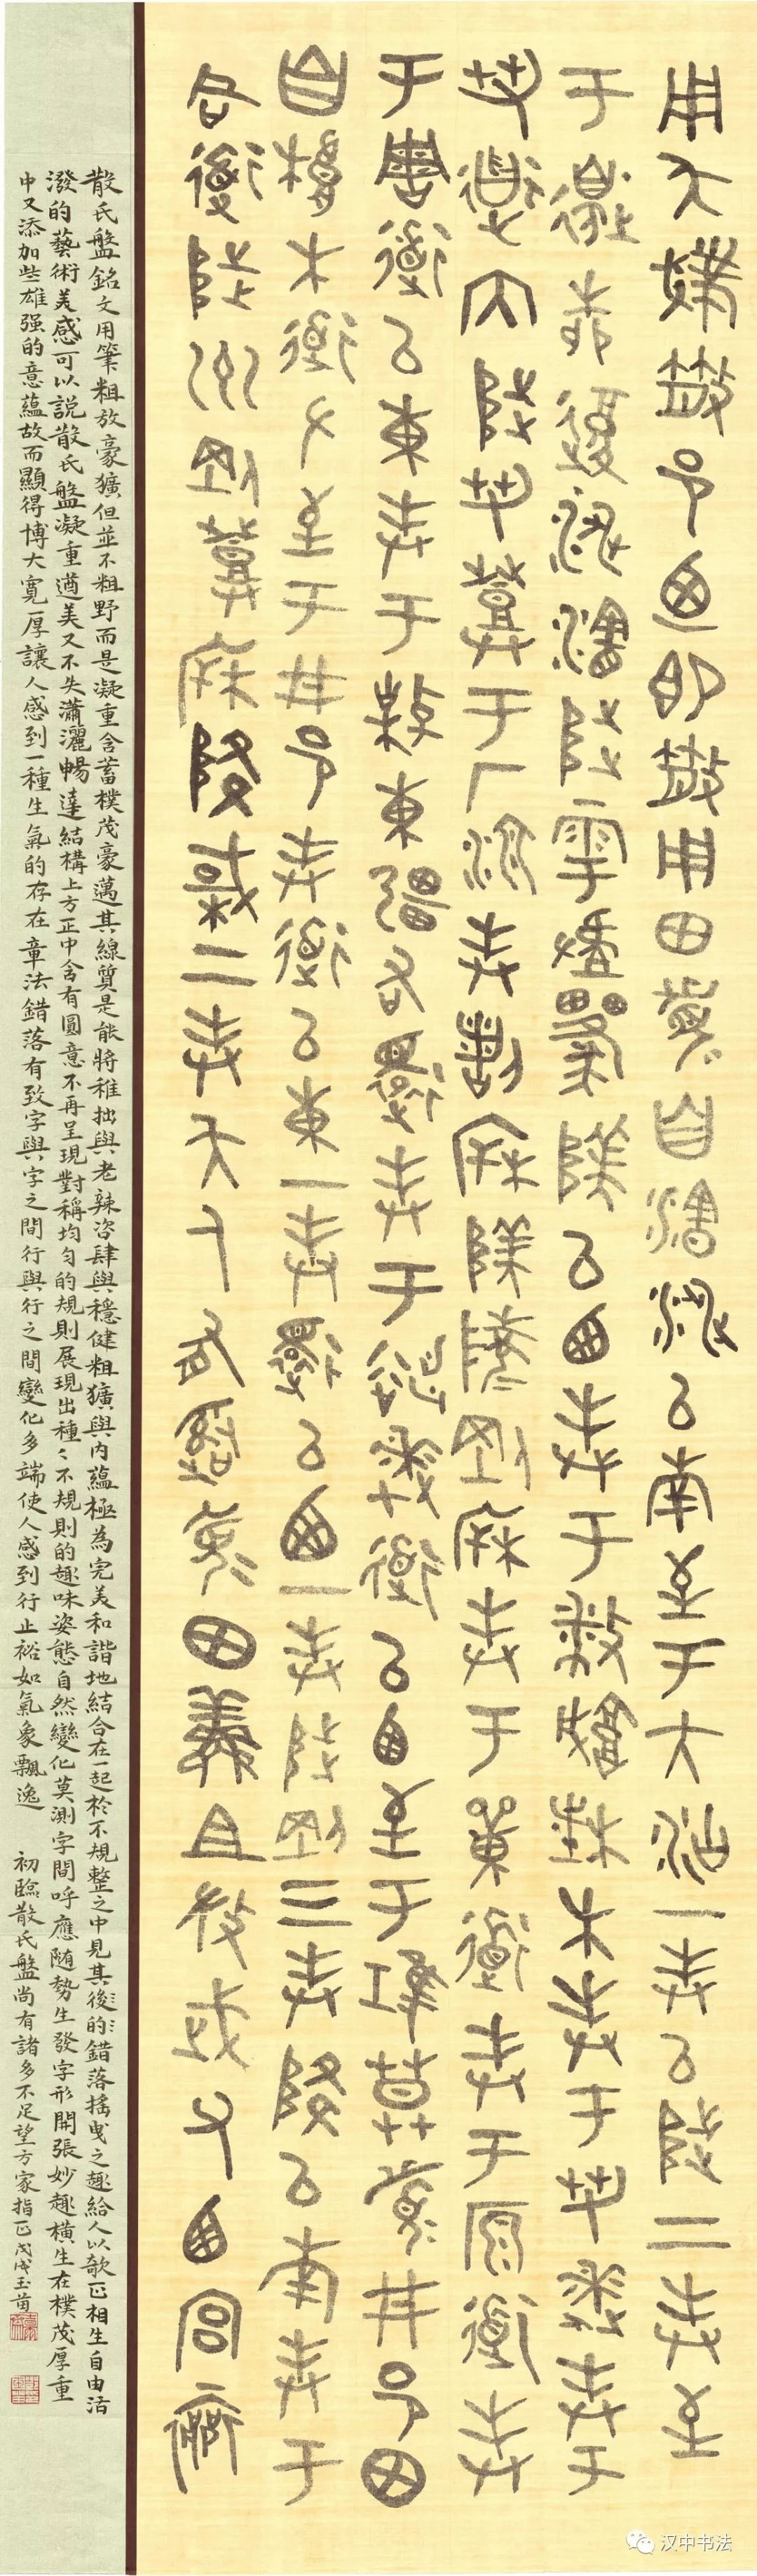 用夨散邑迺即散用田眉自瀗涉以南至于大沽一封以陟二封至
于邊柳復涉瀗陟雩陝以西封于城楮木封于芻逨封于
芻道內陟芻登于厂湶封陝陵剛封于單道封于原道封
于周道以東封于東疆右還封于逨道以西至于莫眉井邑田
自木道左至于井邑封道以東一封還以西一封陟剛三封降以南封于
同道陟州剛登降棫二封夨人有司眉田鮮且微武父西宮襄
散氏盤銘文用筆粗放豪獷但並不粗野而是凝重含蓄樸茂豪邁其線質是能將稚拙與老辣咨肆與穩健粗獷與內蘊極為完美和諧地結合在一起於不規整之中見其後的錯落摇曳之趣給人以欹正相生自由活
潑的藝術美感可以說散氏盤凝重遒美又不失瀟灑暢達結構上方正中含有圓意不再呈現對稱均匀的規則展現出種々不規則的趣味姿態自然變化莫測字間呼應随勢生發字形開張妙趣橫生在樸茂厚重
中又添加些雄强的意蘊故而顯得博大寬厚讓人感到一種生氣的存在章法錯落有致字與字之間行與行之間變化多端使人感到行止裕如氣象飄逸 初臨散氏盤尚有諸多不足望方家指正戊戌玉苗
汉中书法